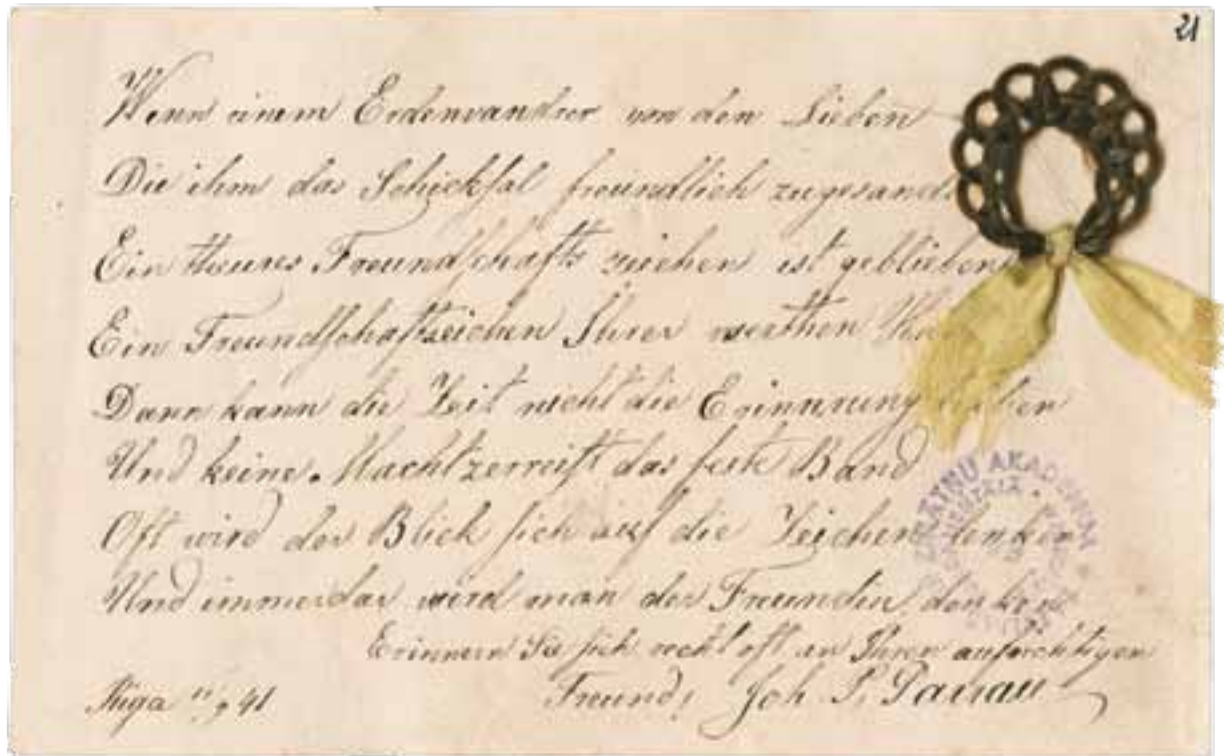 21
Wenn einem Erdenwandrer von den Lieben
Die ihm das Schickſal freundlich zugesandt
Ein theures Freundſchafts zeichen ist geblieben
Ein Freundſchaftzeichen Ihrer werthen
Dann kann die Zeit nicht die Erinnerung
Und keine Macht zerreiſt das feste Band
Oft wird der Blick ſich auf die Zeichen lenken
Und immerdar wird man der Freundin denken
Erinnern Sie ſich recht oft an Ihren aufrichtigen
Freund, Joh
Riga 11/9 41
AKADEMIJA